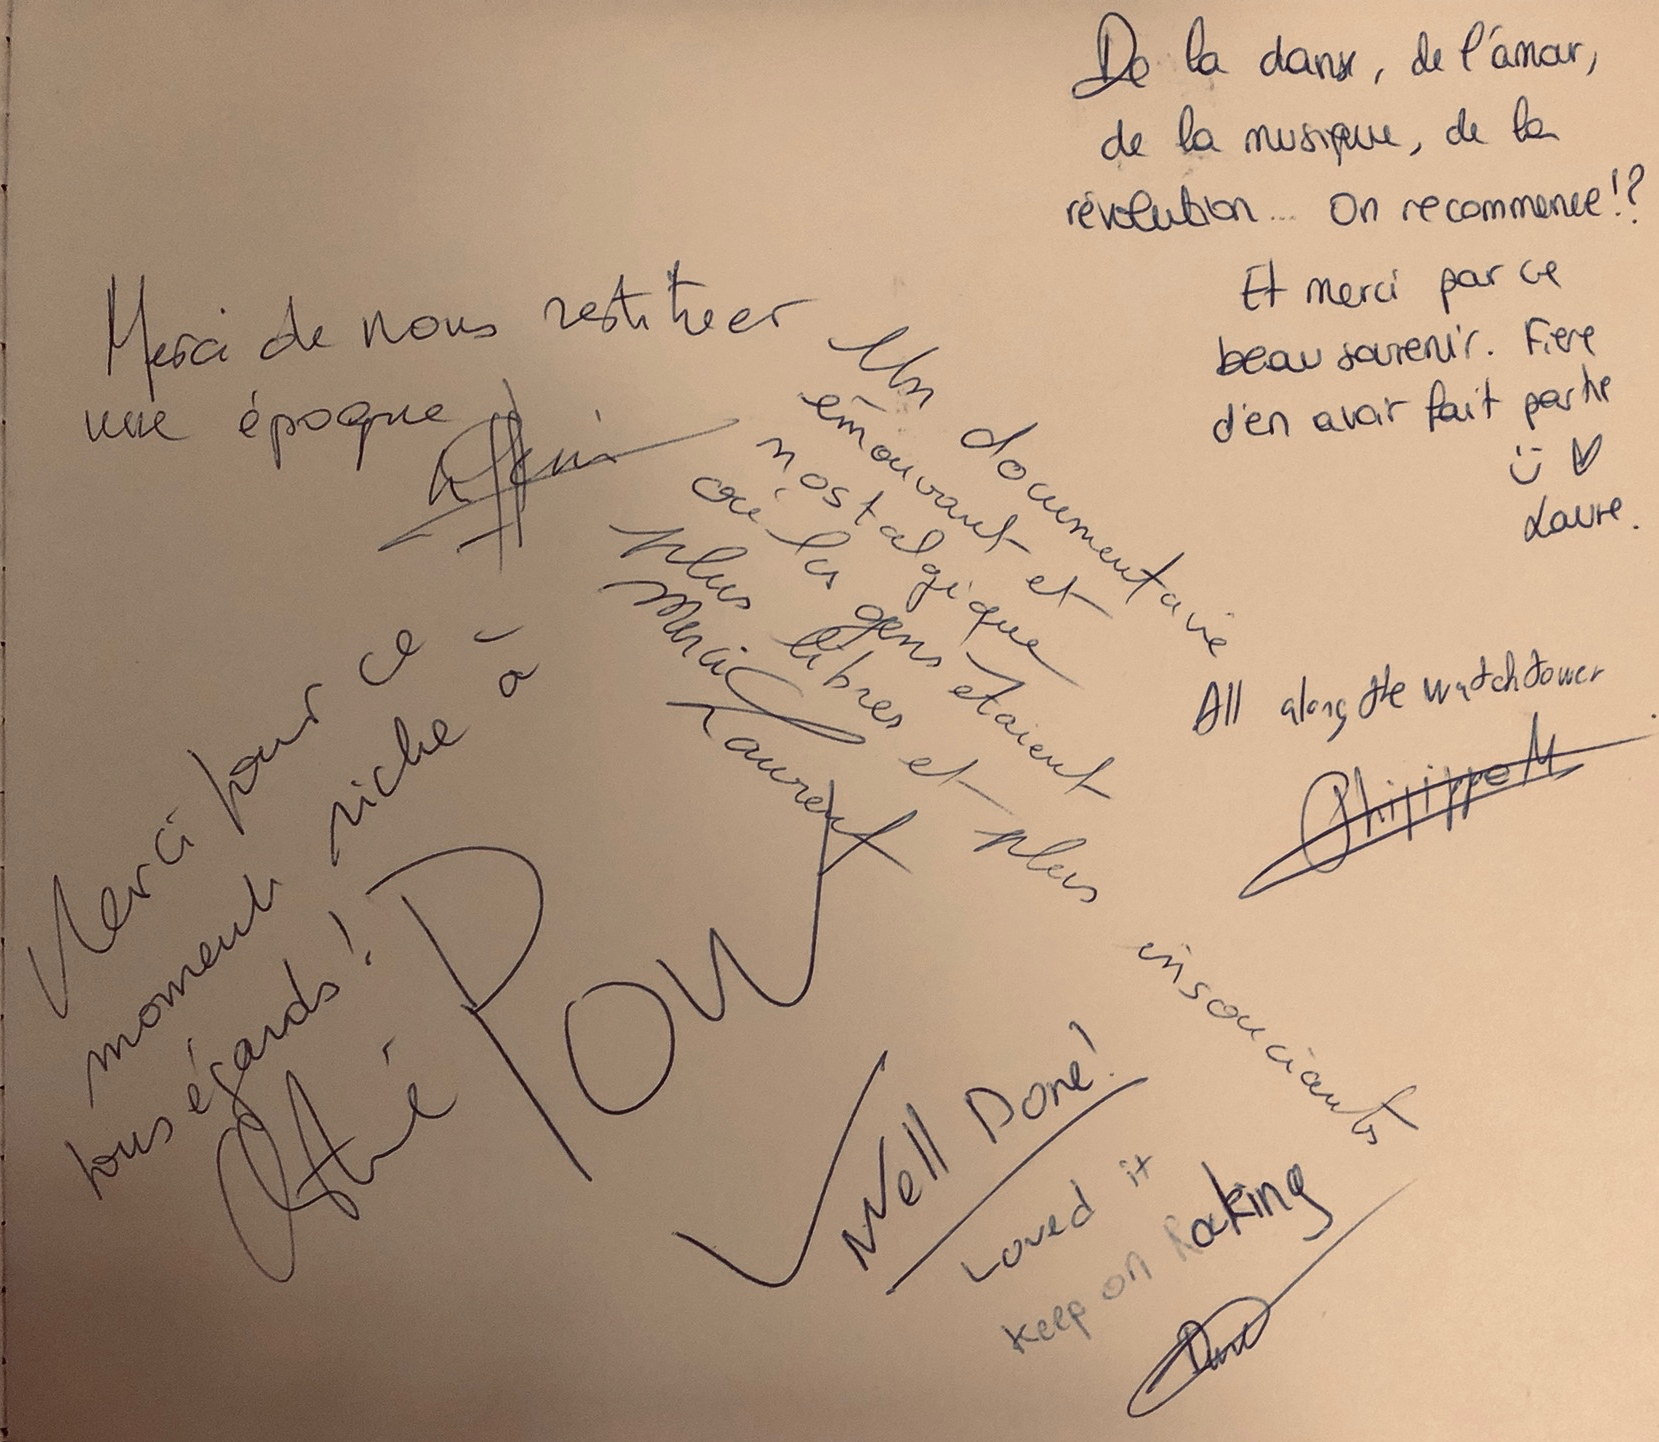 De la danse, de l'amour,
de la musique, de la
révolution... On recommence!?
Et merci par ce
beau souvenir. Fiere
d'en avoir fait partie
Laure.
Merci de nous restituer
une époque
Un documentaire
émouvant et
nostalgique
où les gens etaient
plus libres et plus insouciants
Merci
Laurent
All along the watchtower
Philippe M
Merci pour ce
moment riche à
tous égards!
Pow
Well Done!
Loved it
Keep on Rocking